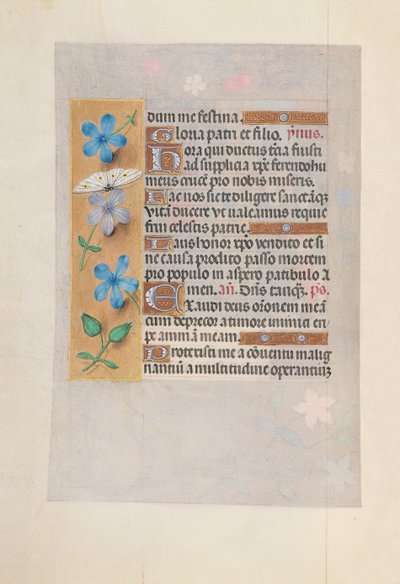 dum me festina.
Gloria patri et filio. p̄mus.
Hora qui ductus t̄cia fuisti
ad supplicia xp̄e ferendo hu
meus crucē pro nobis miseris.
Fac nos sic te diligere sanctāq̄
vitā ducere ut valeamus requie
frui celestis patrie.
Laus honor xp̄o vendito et si
ne causa prodito passo mortem
pro populo in aspero patibulo A
men. añ. Dn̄s tanq̄ȝ. ps.
Exaudi deus oronem meā
cum deprecor a timore inimici eri
pe animam meam.
Protexisti me a cōventu malig
nantiū a multitudine operantiuȝ